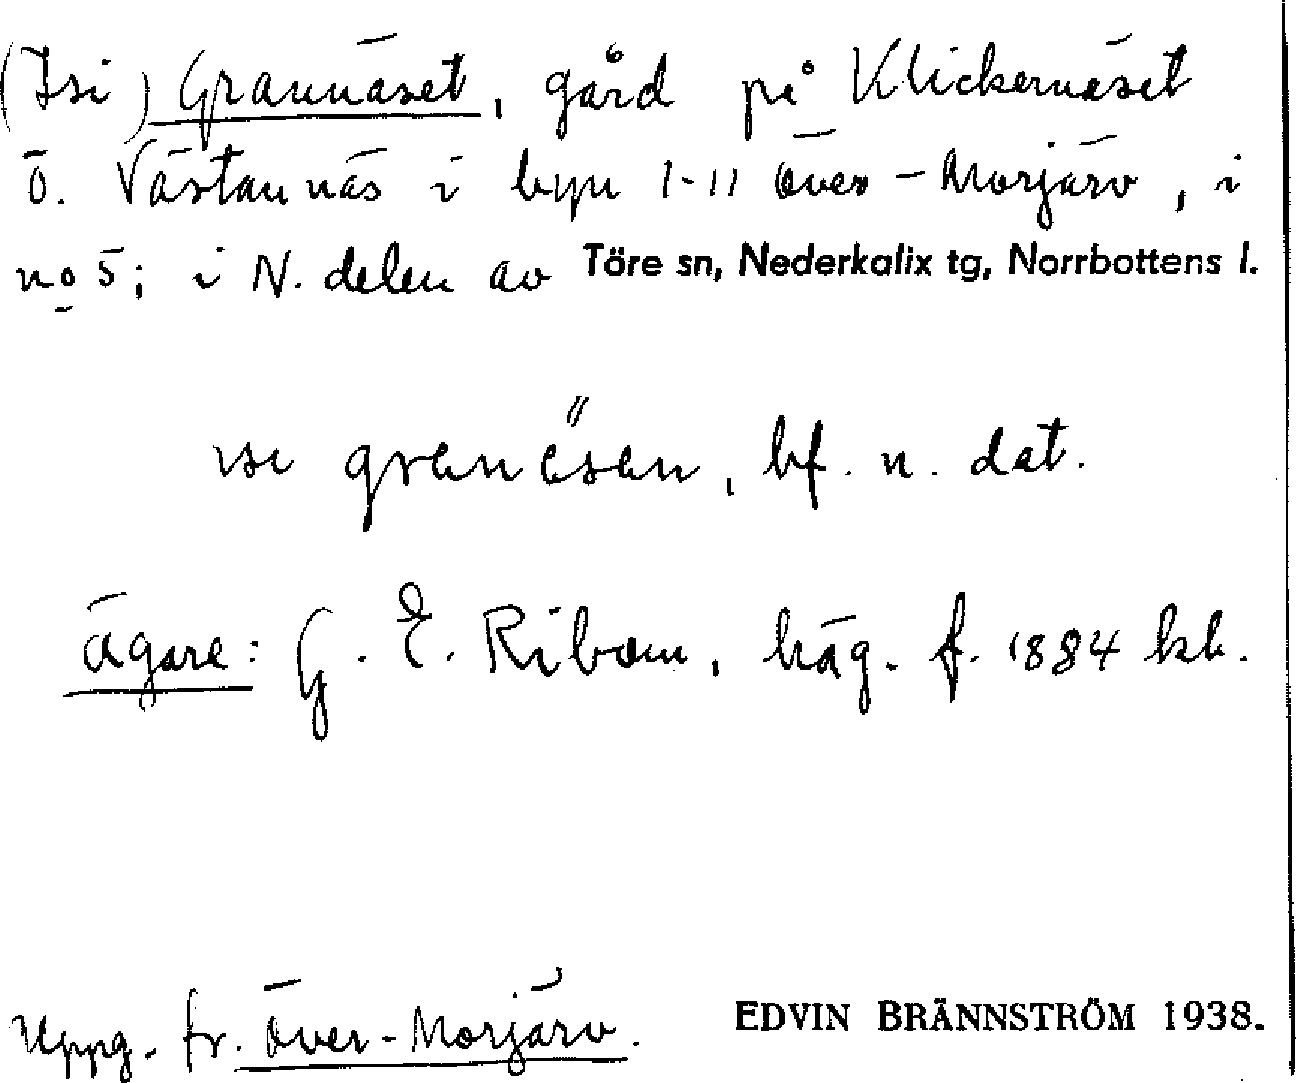 (Isi) Grannäset, gård på Klickernäset
ö. Västannäs i byn 1-11 Över-Morjärv, i
no 5; i N. delen av Töre sn, Nederkalix tg, Norrbottens l.
granesen, bf. n. dat.
ägare: G. E. Ribom, häg. f. 1884 kb.
Uppg. fr. Över-Morjärv. EDVIN BRÄNNSTRÖM 1938.